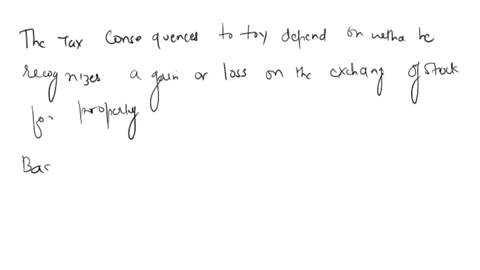 The Tax Conse quences to toy depend on wetha he
recog nizes a gain or loss on the exchang of stock
for property
Bas